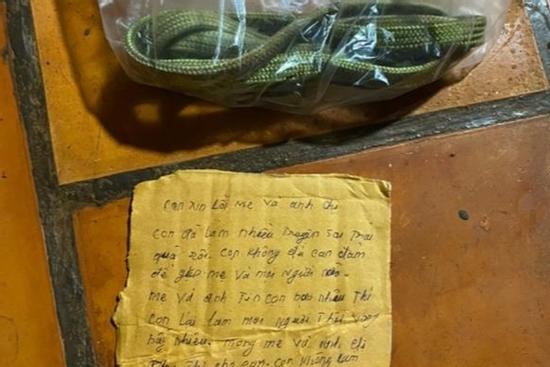 con xin lỗi mẹ và anh chị
con đã làm nhiều truyện sai trái
quá rồi. con không đủ can đảm
để gặp mẹ và mọi người nữa.
mẹ và anh tin con bao nhiêu thì
con lại làm mọi người thất vọng
bấy nhiêu. mong mẹ và anh chị
tha thứ cho con. con không làm